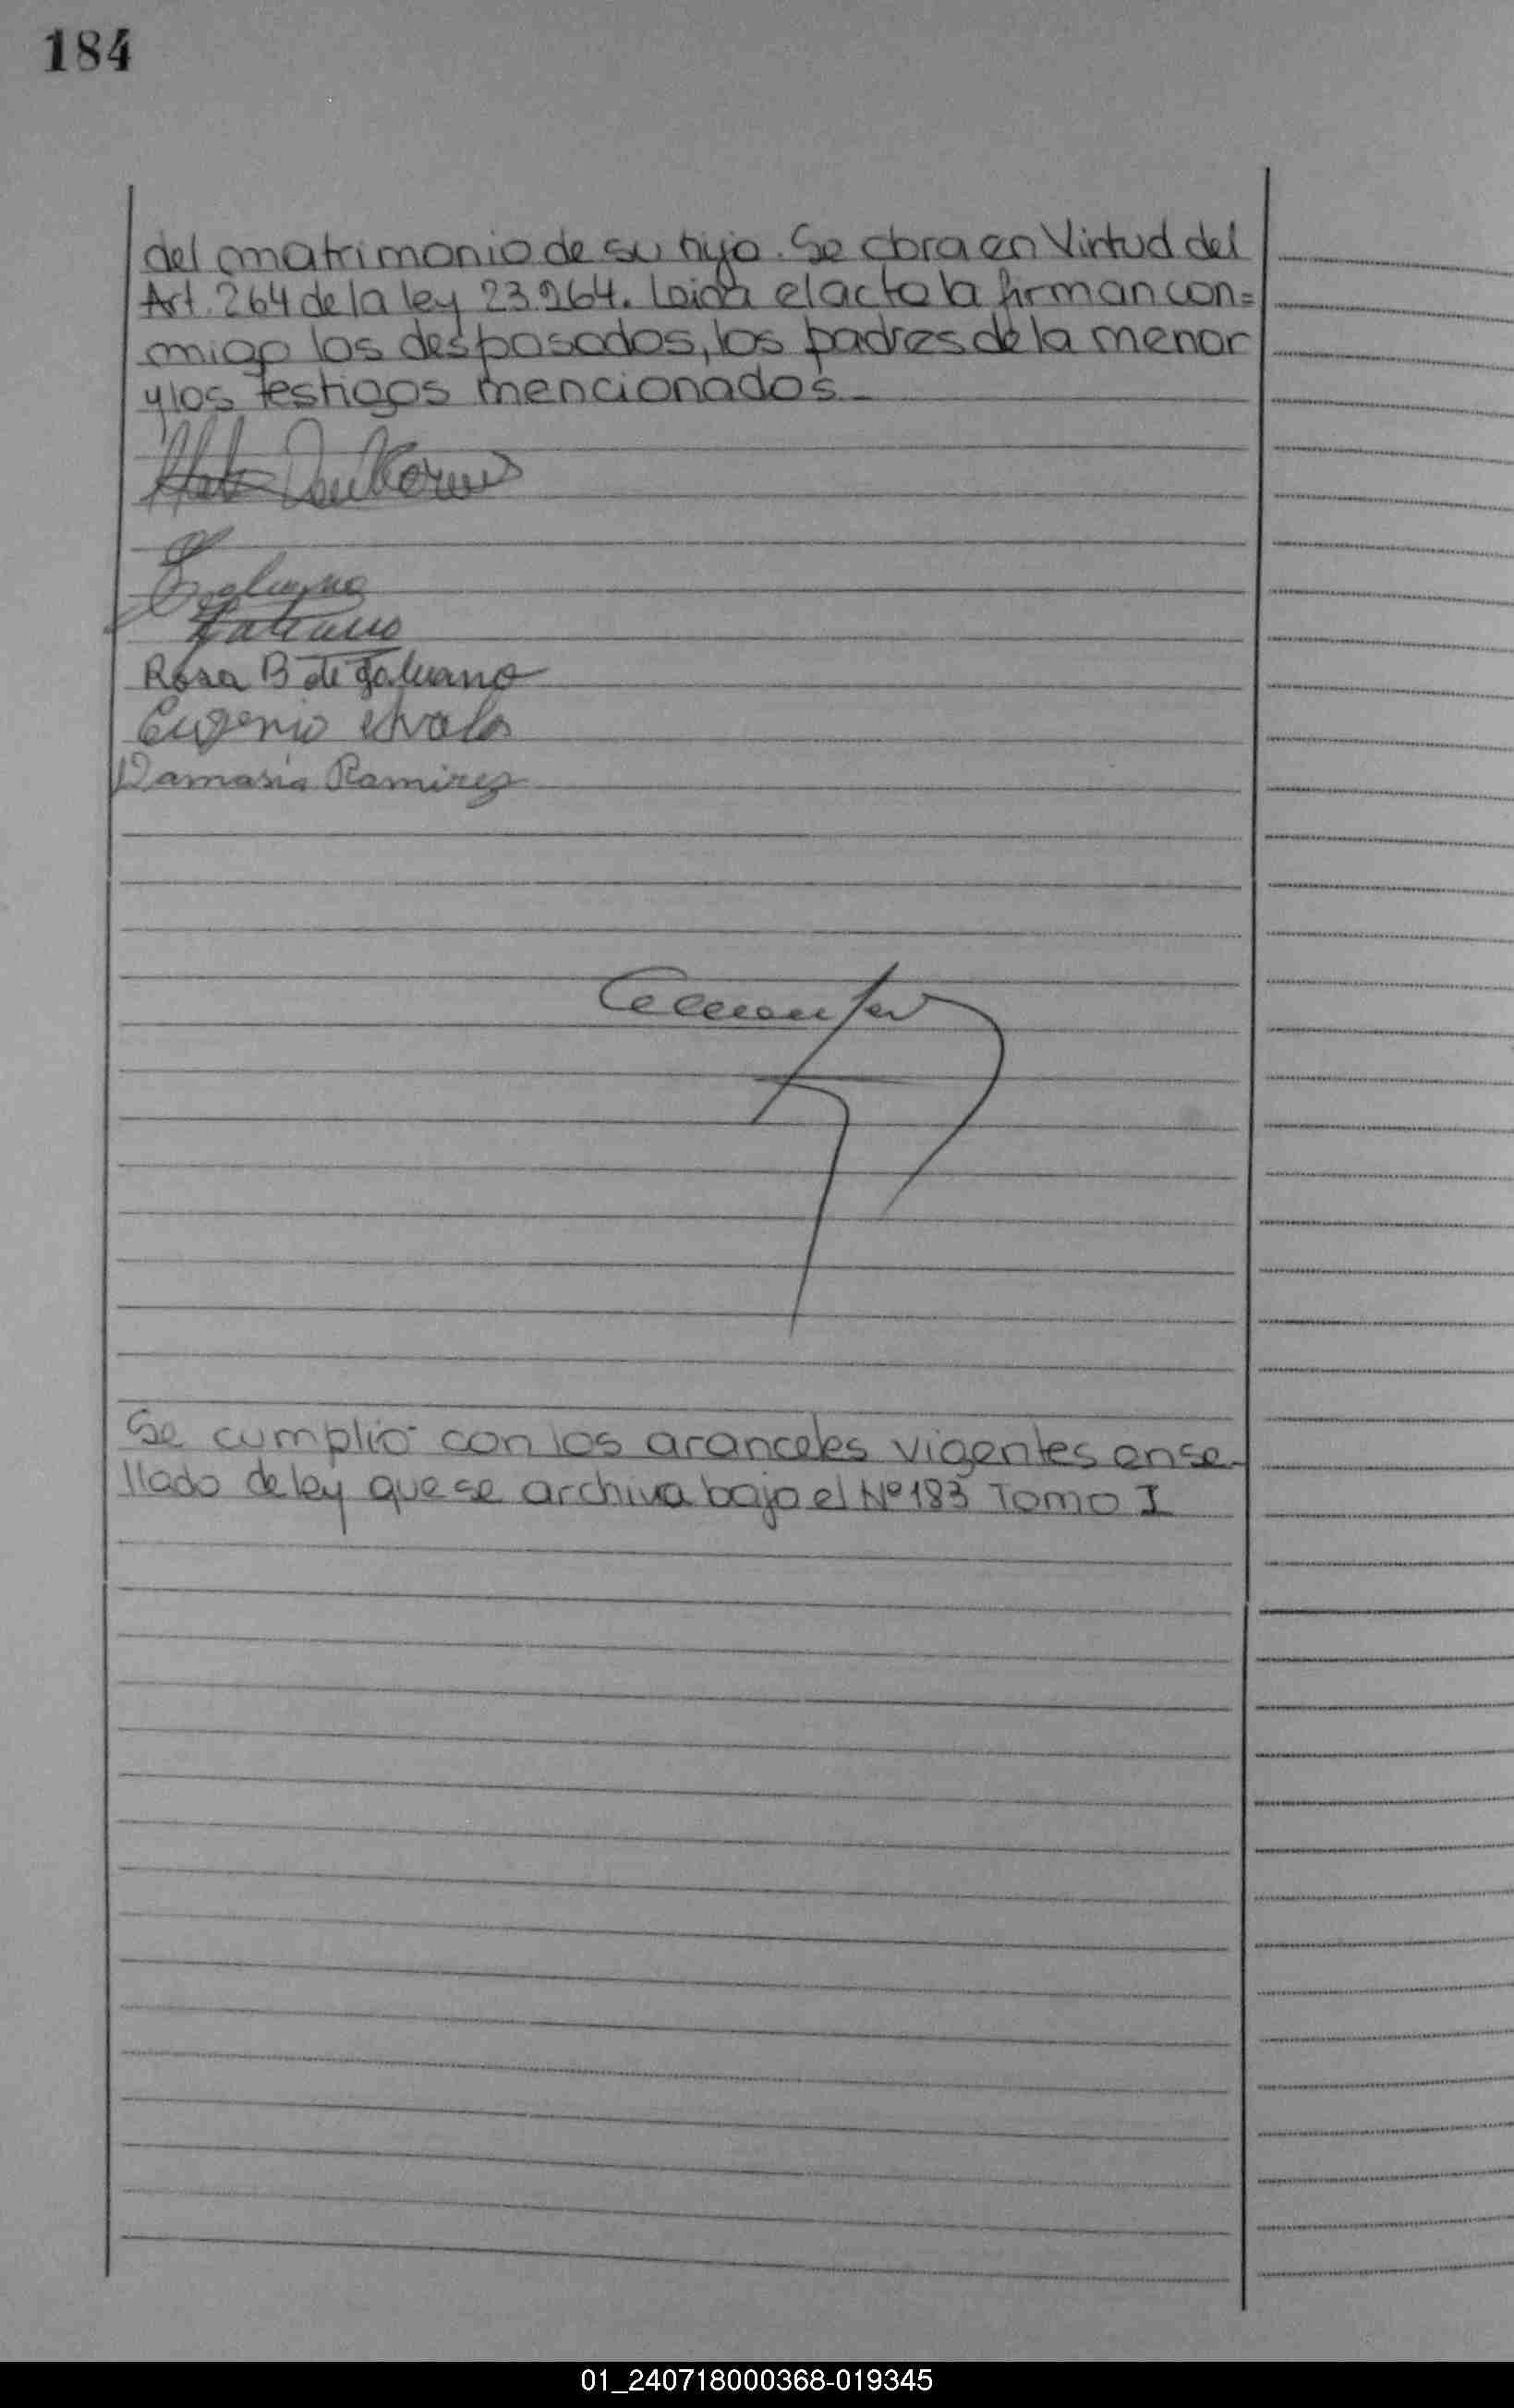 184
del matrimonio de su hija. Se obra en Virtud del
Art. 264 de la ley 23.264. Leida el acta la firman con=
migo los desposados, los padres de la menor
y los testigos mencionados.-
Galvano
Rosa B de Galvano
Eugenio
Damasia Ramirez
Se cumplió con los aranceles vigentes en se-
llado de ley que se archiva bajo el Nº 183 Tomo I
01_240718000368-019345